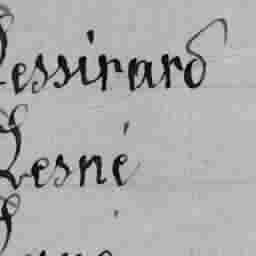 Lessirard
Lesné